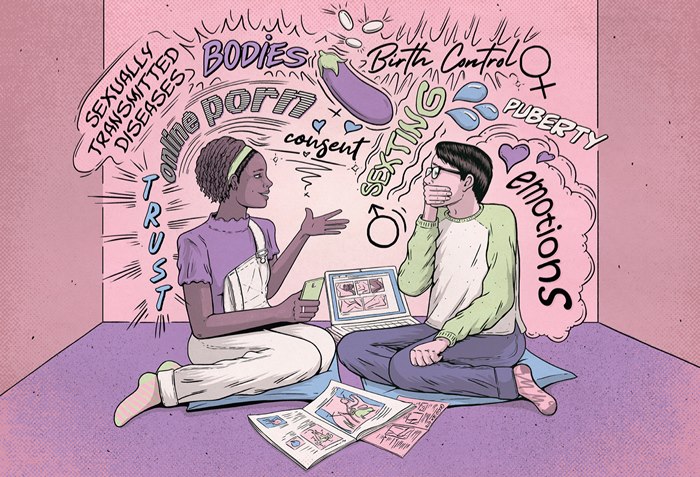 SEXUALLY
TRANSMITTED
DISEASES
BODiES
Birth Control
online porn
consent
SEXTING
PUBERTY
TRUST
emotions